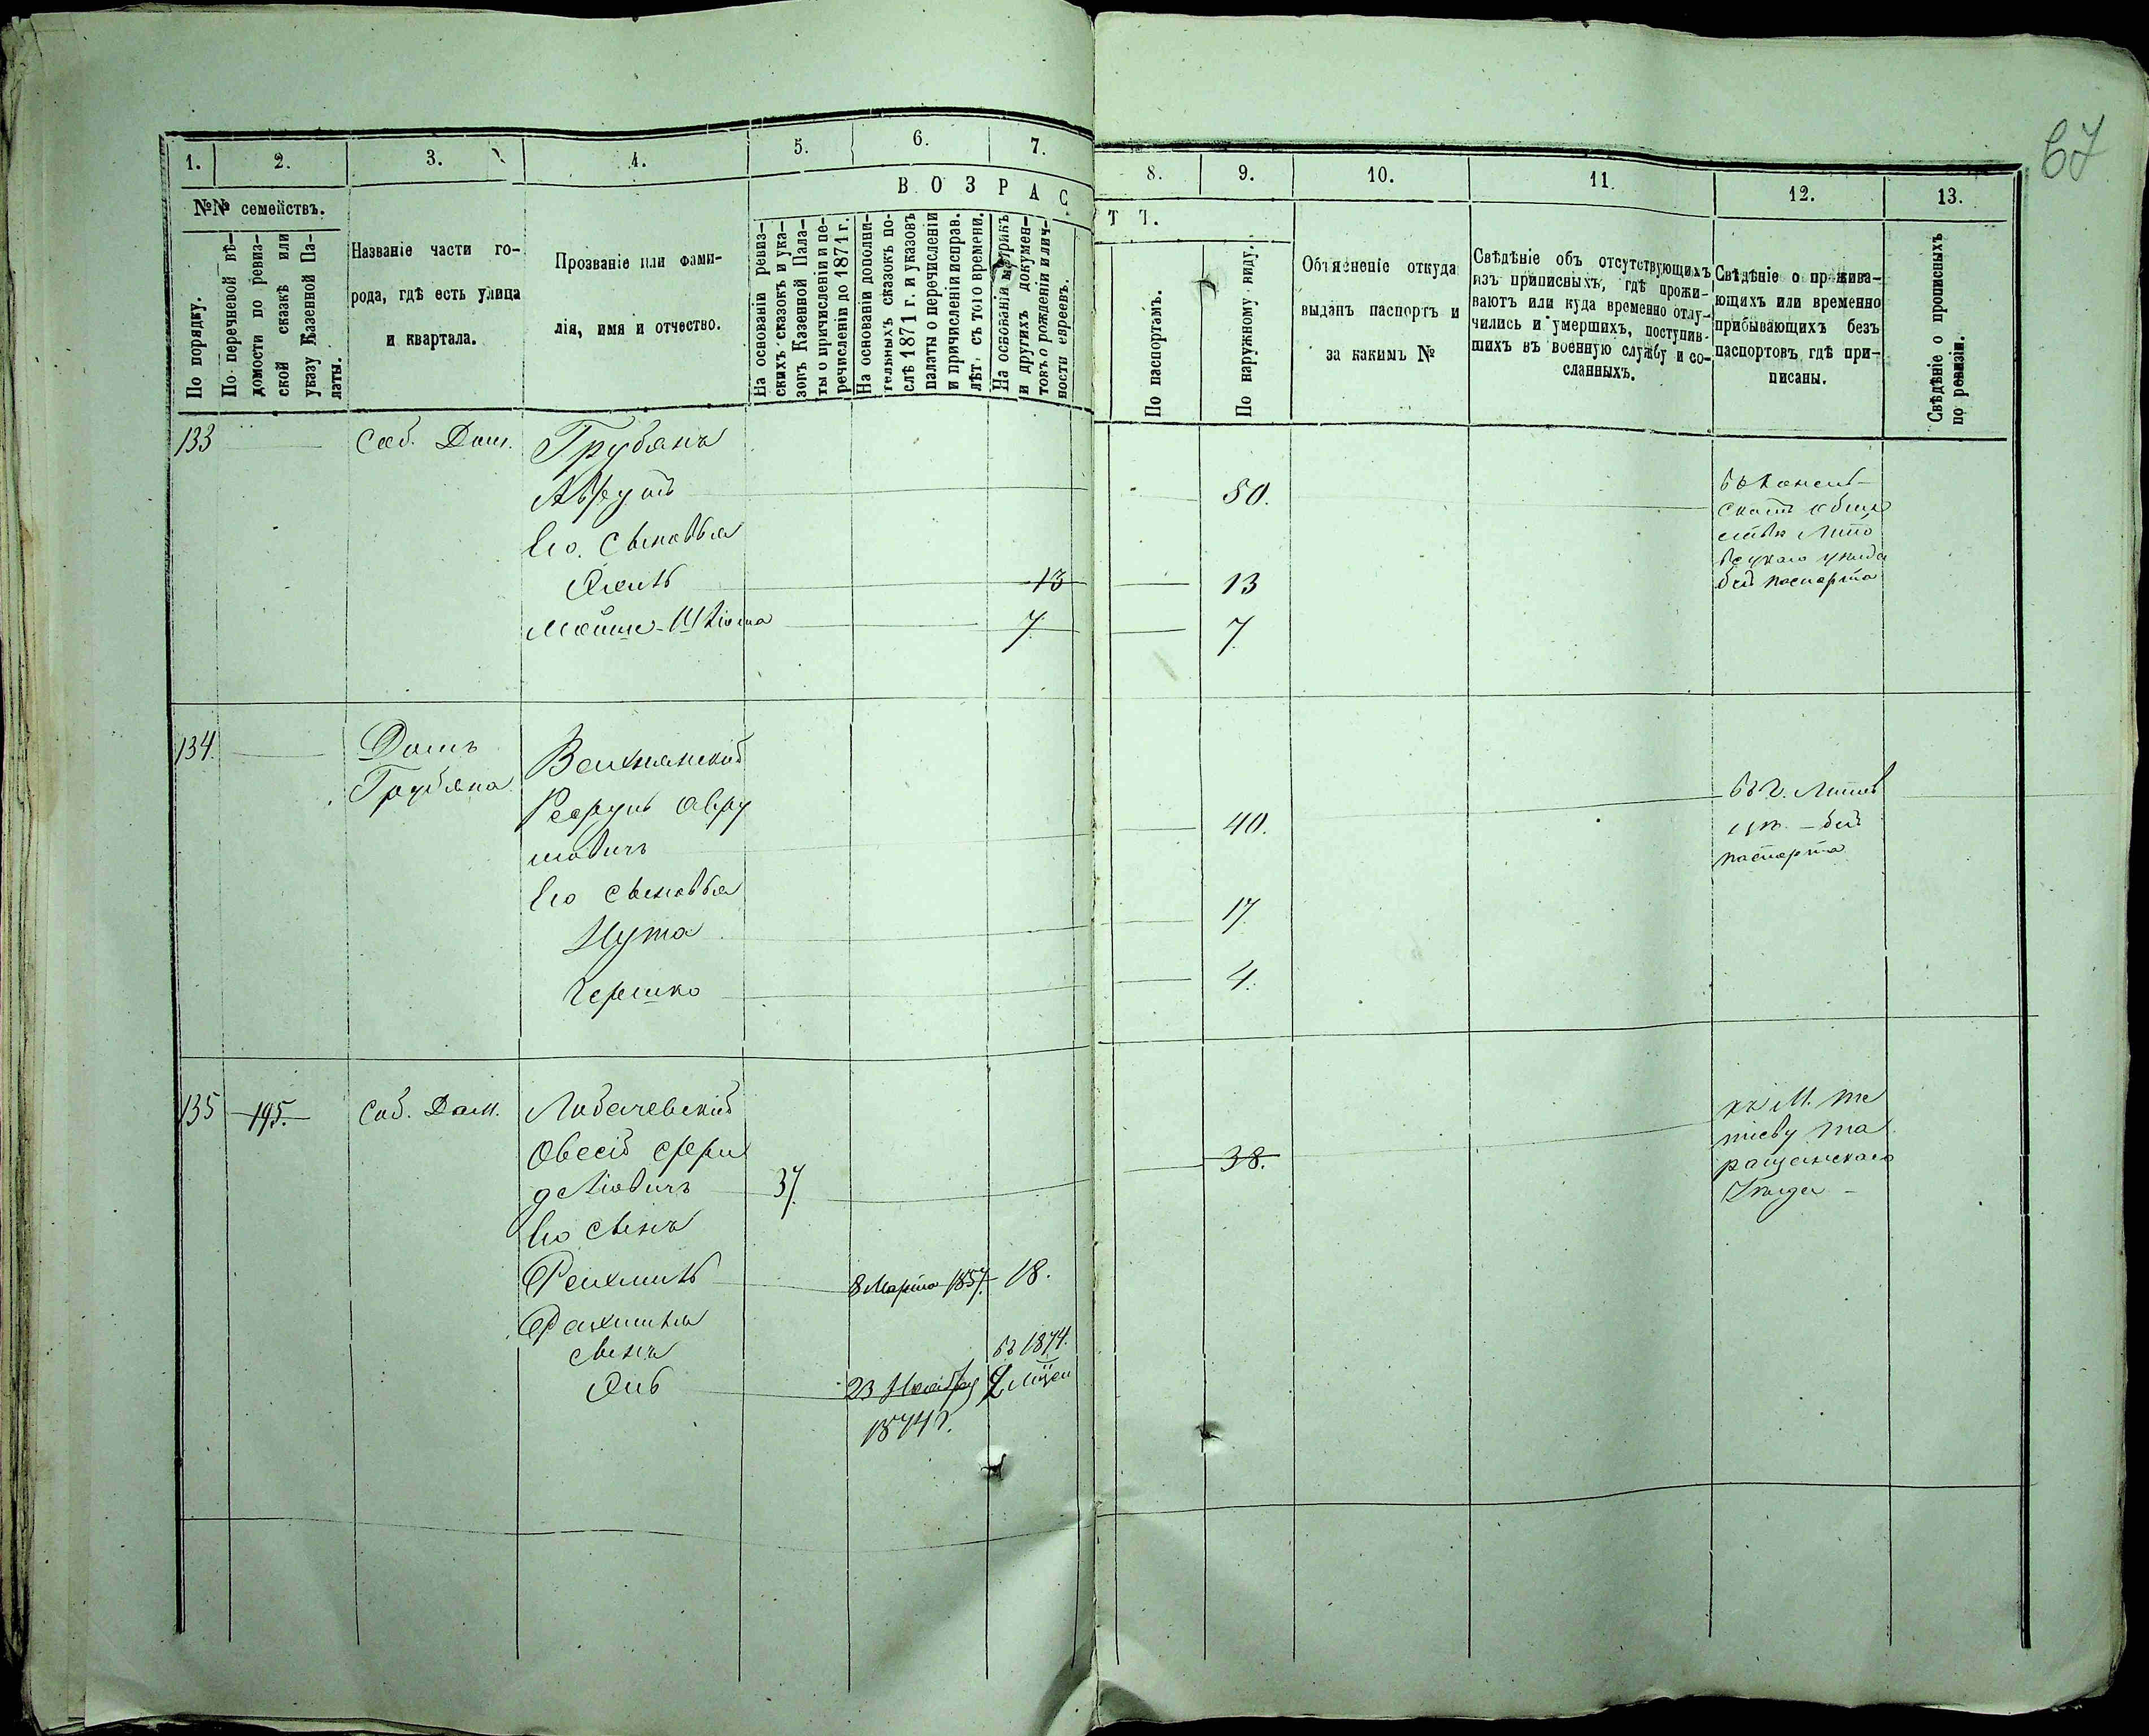 67
1. 2. 3. 4. 5. 6. 7. 8. 9. 10. 11. 12. 13.
№№ семействъ.
По порядку.
По перечневой вѣ-
домости по ревиз-
ской сказкѣ или
указу Казенной Па-
латы.
Названіе части го-
рода, гдѣ есть улица
и квартала.
Прозваніе или фами-
лія, имя и отчество.
ВОЗРАСТЪ.
На основаніи ревиз-
скихъ сказокъ и ука-
зовъ Казенной Пала-
ты о причисленіи и пе-
речисленіи до 1871 г.
На основаніи дополни-
тельныхъ сказокъ по-
слѣ 1871 г. и указовъ
палаты о перечисленіи
и причисленіи исправ.
лѣт. съ того времени.
На основаніи метрикъ
и другихъ докумен-
товъ о рожденіи и лич-
ности евреевъ.
По паспортамъ.
По наружному виду.
Объясненіе откуда
выданъ паспортъ и
за какимъ №
Свѣдѣніе объ отсутствующихъ
изъ приписныхъ, гдѣ прожи-
ваютъ или куда временно отлу-
чились и умершихъ, поступив-
шихъ въ военную службу и со-
сланныхъ.
Свѣдѣніе о прожива-
ющихъ или временно
прибывающихъ безъ
паспортовъ, гдѣ при-
писаны.
Свѣдѣніе о прописныхъ
по ревизіи.
133 Соб. Дом. Грубянъ
50.
Его сыновья
13 13
Мойше-Шліома 7 7
скомъ обще
ствѣ Липо
вецкаго уѣзда
без паспорта
134. Домъ
Грубяна
Вахнянскій
Авру
мовичъ 40.
Его сыновья
Нута 17
Гершко 4.
въ г. Липов
цѣ - без
паспорта
135 195. Соб. Дом. Лобачевскій
Овсей Фри
деліовичъ 37. 38.
Его сынъ
Рахмиль 8 Марта 1857. 18.
Рахмиля
сынъ въ 1874.
23 Ноября
1874 г.
къ М. Те
тіеву Та
ращанскаго
Уѣзда -